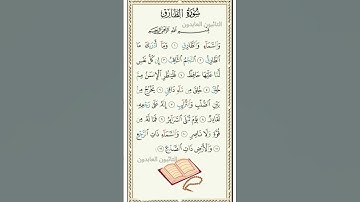 سُورَةُ الطَّارِقِ
التائبون العابدون
بِسْمِ اللَّهِ الرَّحْمَٰنِ الرَّحِيمِ
وَالسَّمَاءِ وَالطَّارِقِ ١ وَمَا أَدْرَىٰكَ مَا
الطَّارِقُ ٢ النَّجْمُ الثَّاقِبُ ٣ إِن كُلُّ نَفْسٍ
لَّمَّا عَلَيْهَا حَافِظٌ ٤ فَلْيَنظُرِ الْإِنسَٰنُ مِمَّ
خُلِقَ ٥ خُلِقَ مِن مَّاءٍ دَافِقٍ ٦ يَخْرُجُ مِنْ
بَيْنِ الصُّلْبِ وَالتَّرَائِبِ ٧ إِنَّهُ عَلَىٰ رَجْعِهِ
لَقَادِرٌ ٨ يَوْمَ تُبْلَى السَّرَائِرُ ٩ فَمَا لَهُ مِن
قُوَّةٍ وَلَا نَاصِرٍ ١٠ وَالسَّمَاءِ ذَاتِ الرَّجْعِ
١١ وَالْأَرْضِ ذَاتِ الصَّدْعِ ١٢
التائبون العابدون